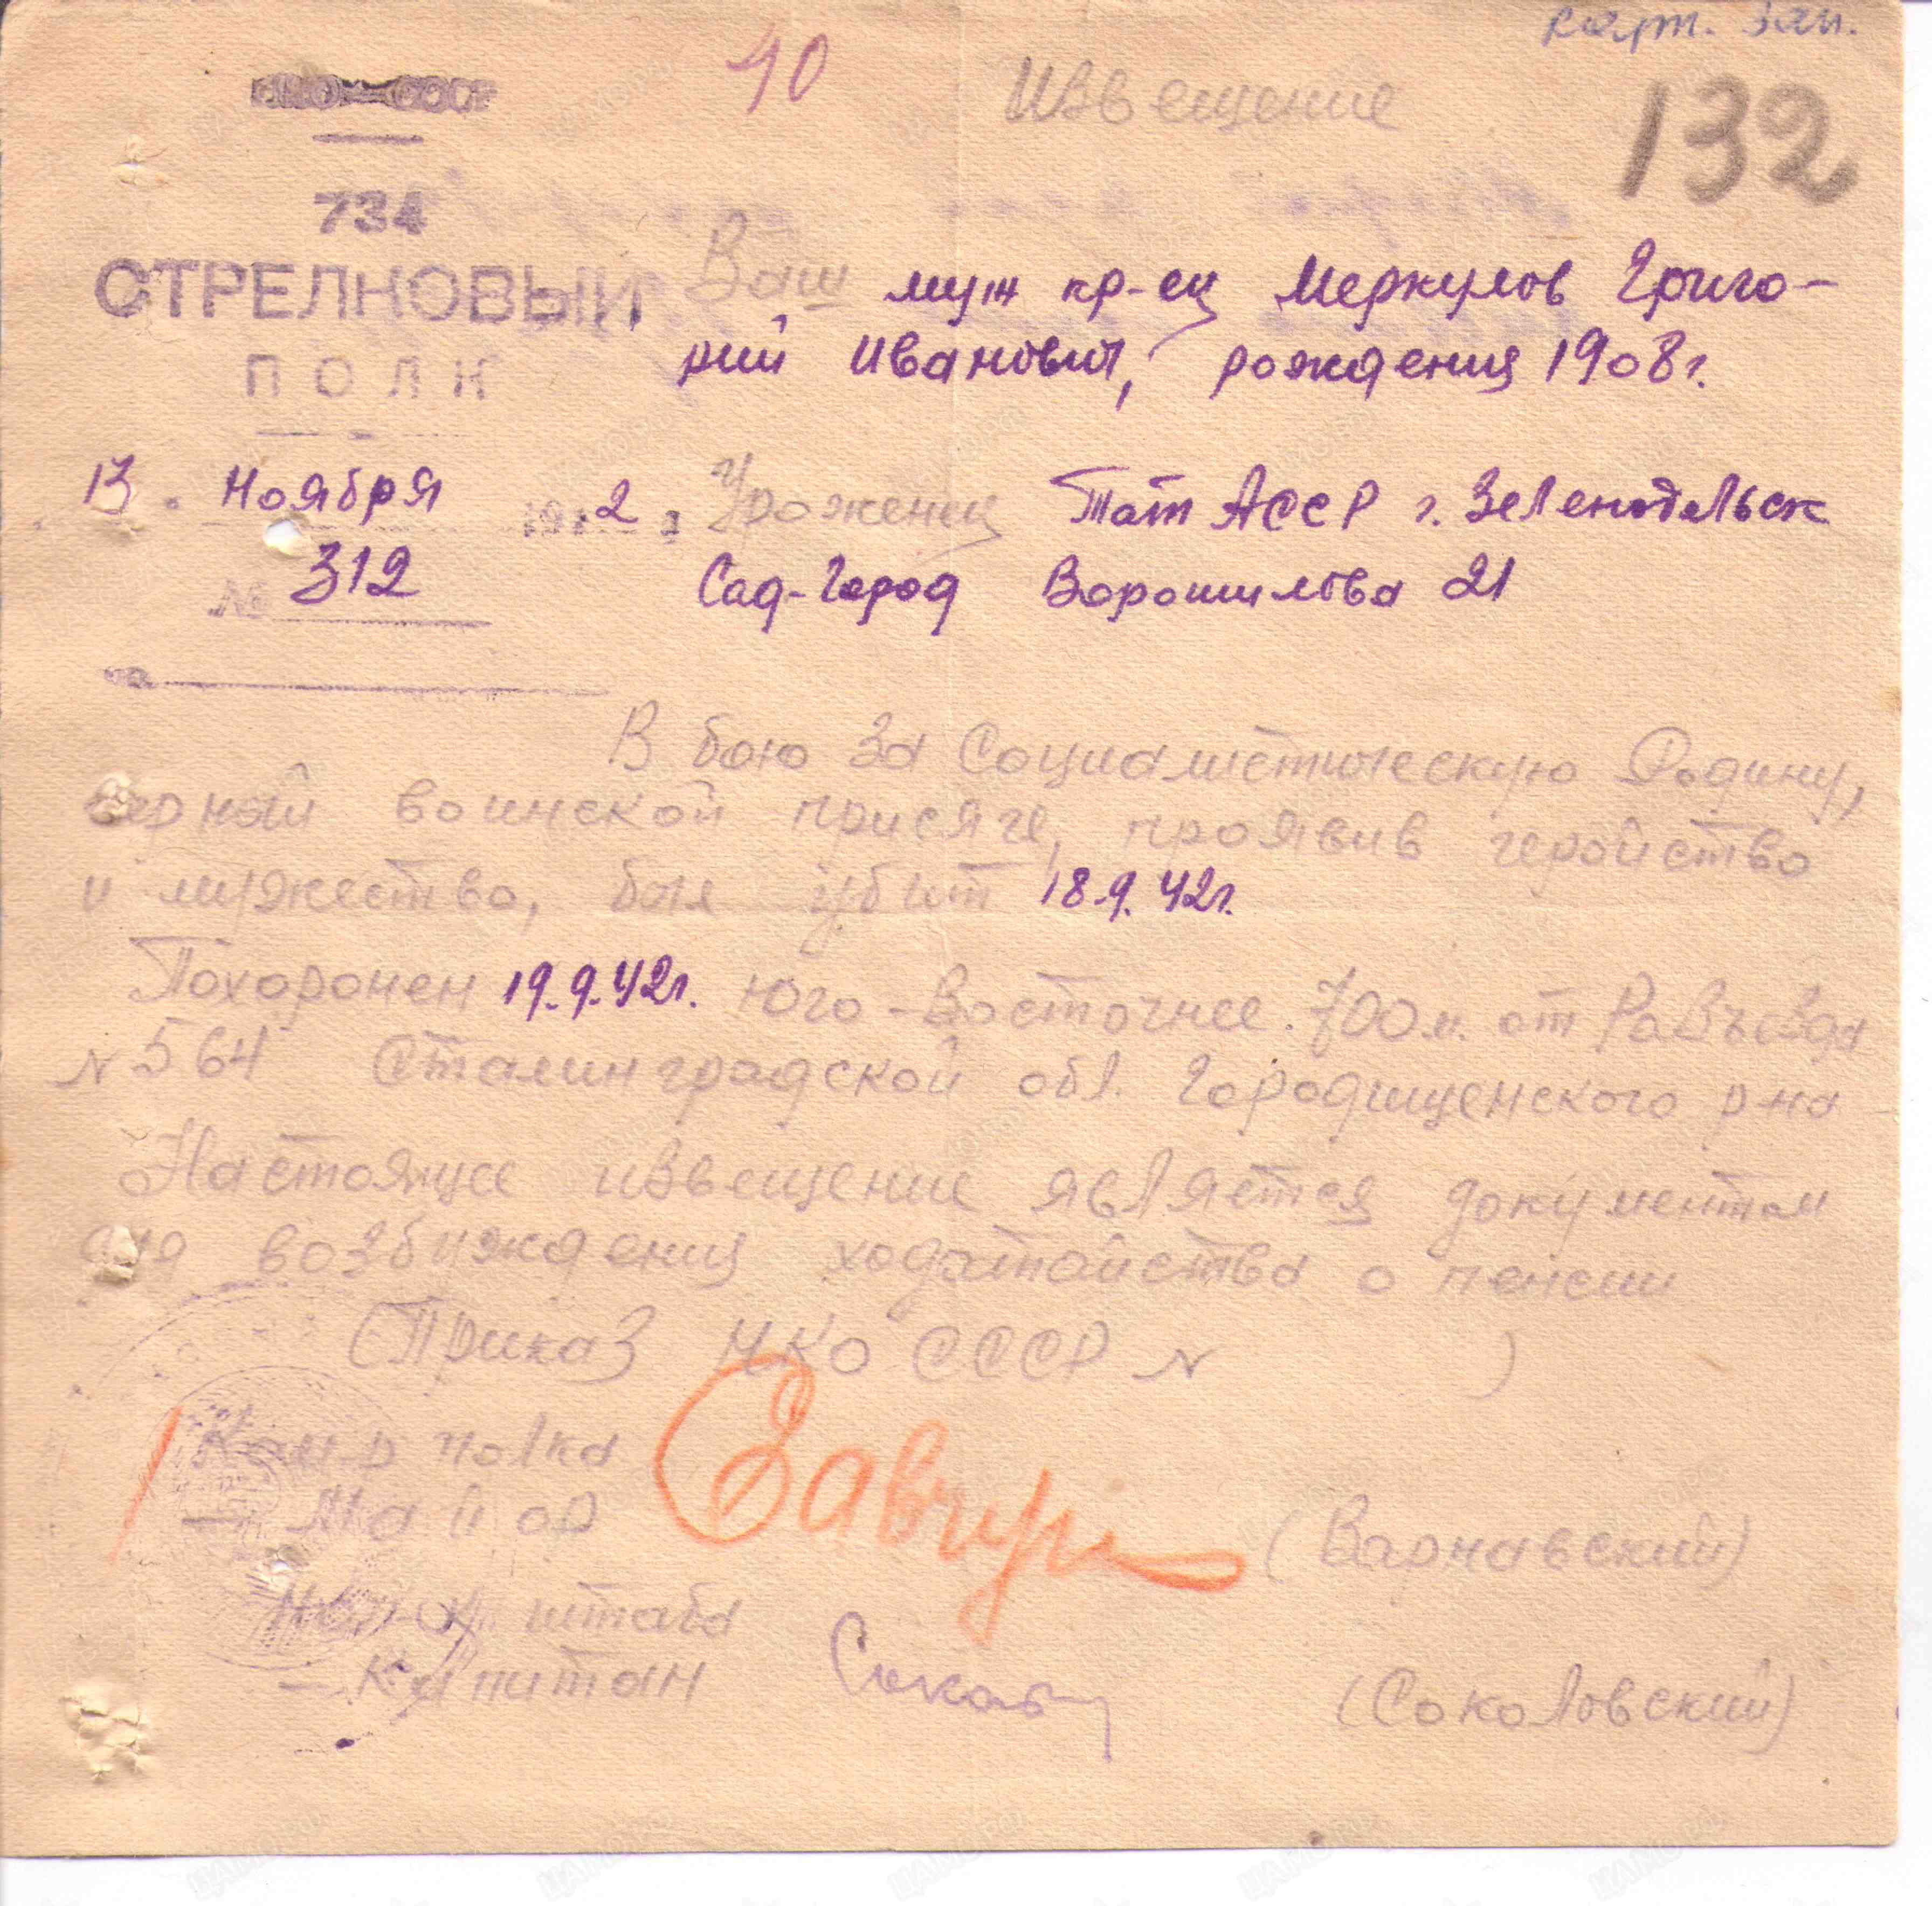 карт. зап.
НКО—СССР
40
Извещение
132
734
СТРЕЛКОВЫЙ
ПОЛК
Ваш муж кр-ец Меркулов Григо-
рий Иванович, рождения 1908 г.
13. Ноября 1942 г.
№ 312
Уроженец Тат АССР г. Зеленодольск
Сад-Город Ворошилова 21
на
В бою за Социалистическую Родину,
верный воинской присяге, проявив геройство
и мужество, был убит 18.9.42г.
Похоронен 19.9.42г. Юго-Восточнее 700 м. от Разъезда
N 564 Сталинградской обл. Городищенского р-на
Настоящее извещение является документом
для возбуждения ходатайства о пенсии
(Приказ НКО СССР N )
Ком-р полка
— Майор (Варнавский)
Нач-к штаба
— Капитан (Соколовский)
ЦАМО.РФ